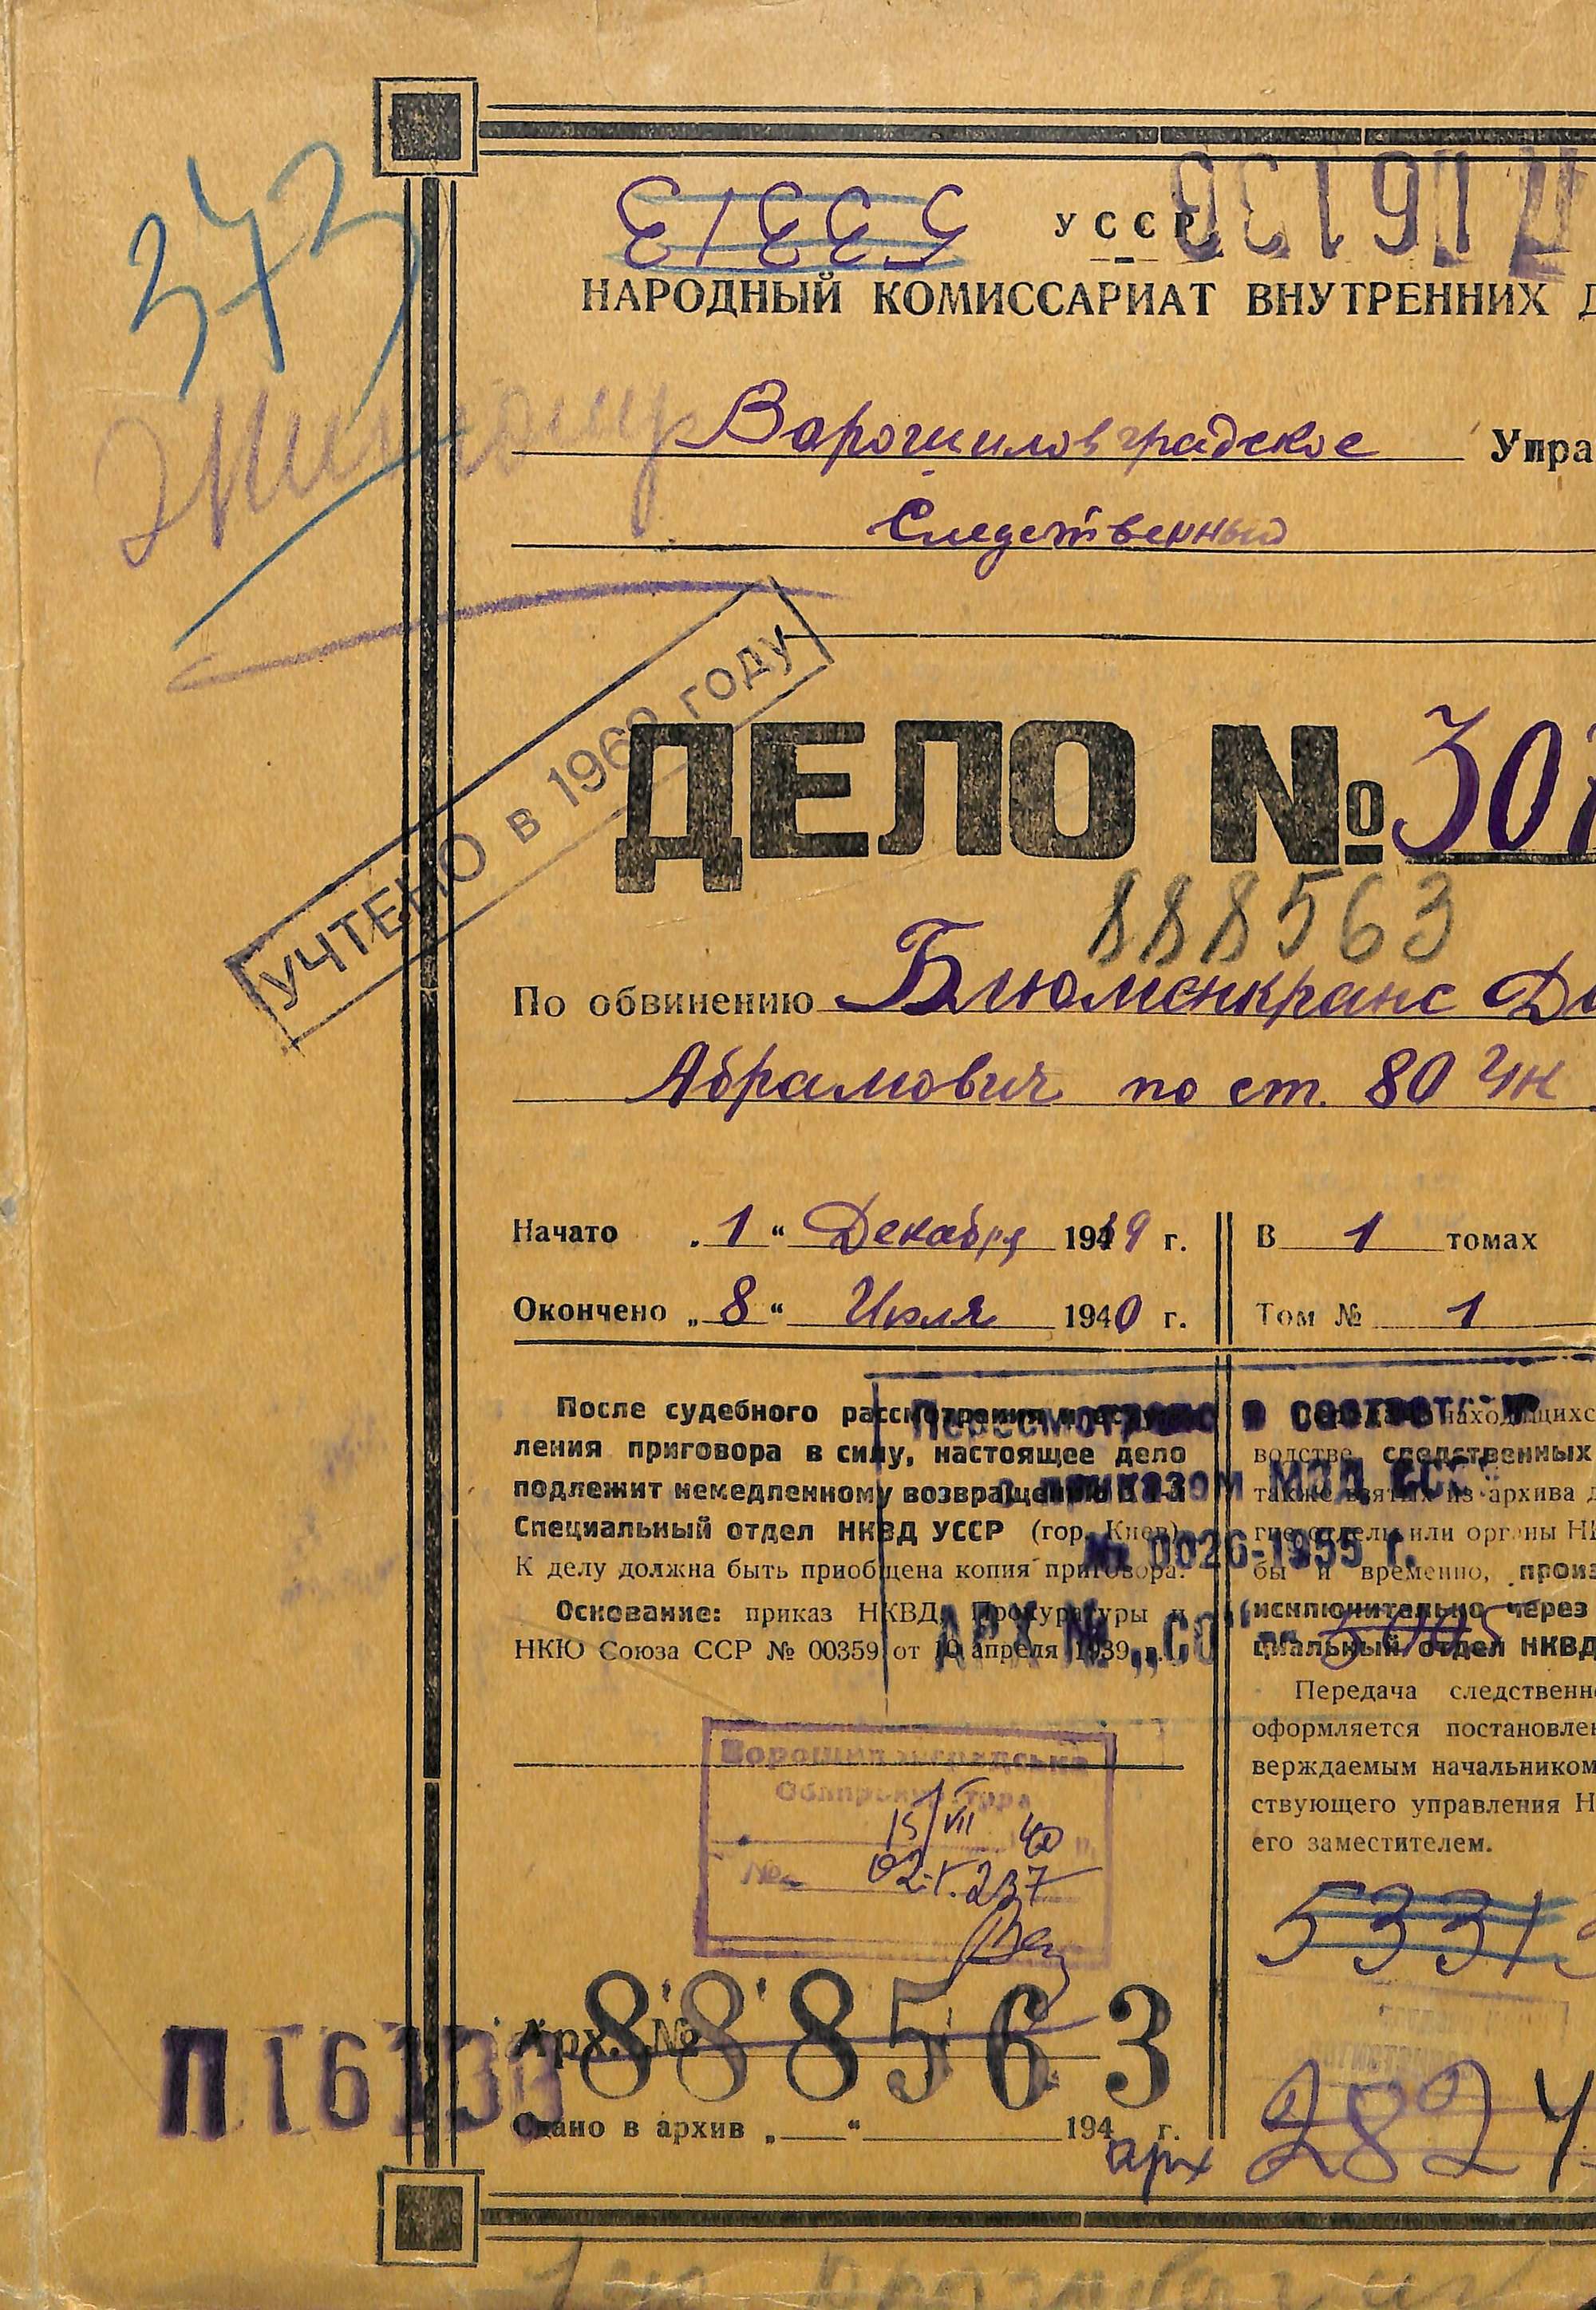 373
53313
УССР
НАРОДНЫЙ КОМИССАРИАТ ВНУТРЕННИХ Д
Житомир
Ворошиловградское Упра
Следственный
УЧТЕНО в 1962 году
ДЕЛО № 307
888563
По обвинению Блюменкранс Да
Абрамович по ст. 80 УК
Начато „1“ Декабря 1939 г.
Окончено „8“ Июля 1940 г.
В 1 томах
Том № 1
После судебного рассмотрения и вступ-
ления приговора в силу, настоящее дело
подлежит немедленному возвращению в 1-й
Специальный отдел НКВД УССР (гор. Киев).
К делу должна быть приобщена копия приговора.
Основание: приказ НКВД, Прокуратуры и
НКЮ Союза ССР № 00359 от 10 апреля 1939 г.
Пересмотрено в соответств
с приказом МВД ССС
№ 0026-1955 г.
АРХ № „СО“
находящихс
водстве следственных
также взятых из архива д
гие отделы или органы НК
бы и временно, произ
исключительно через
циальный отдел НКВД
Передача следственн
оформляется постановлен
верждаемым начальником
ствующего управления Н
его заместителем.
Ворошиловградська
Облпрокуратура
15/VII 40
№ 02-1.237
5331
Арх. №
888563
П16133
Сдано в архив „ “ 194 г.
арх 2824